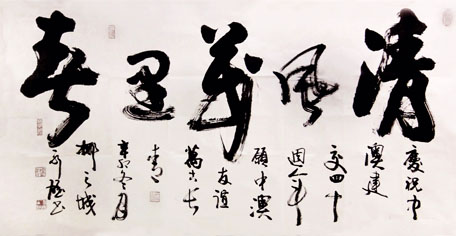 清风萬里春
慶祝中
澳建
交四十
週年
願中澳
友誼
萬古長
青
辛卯冬月
柳之城